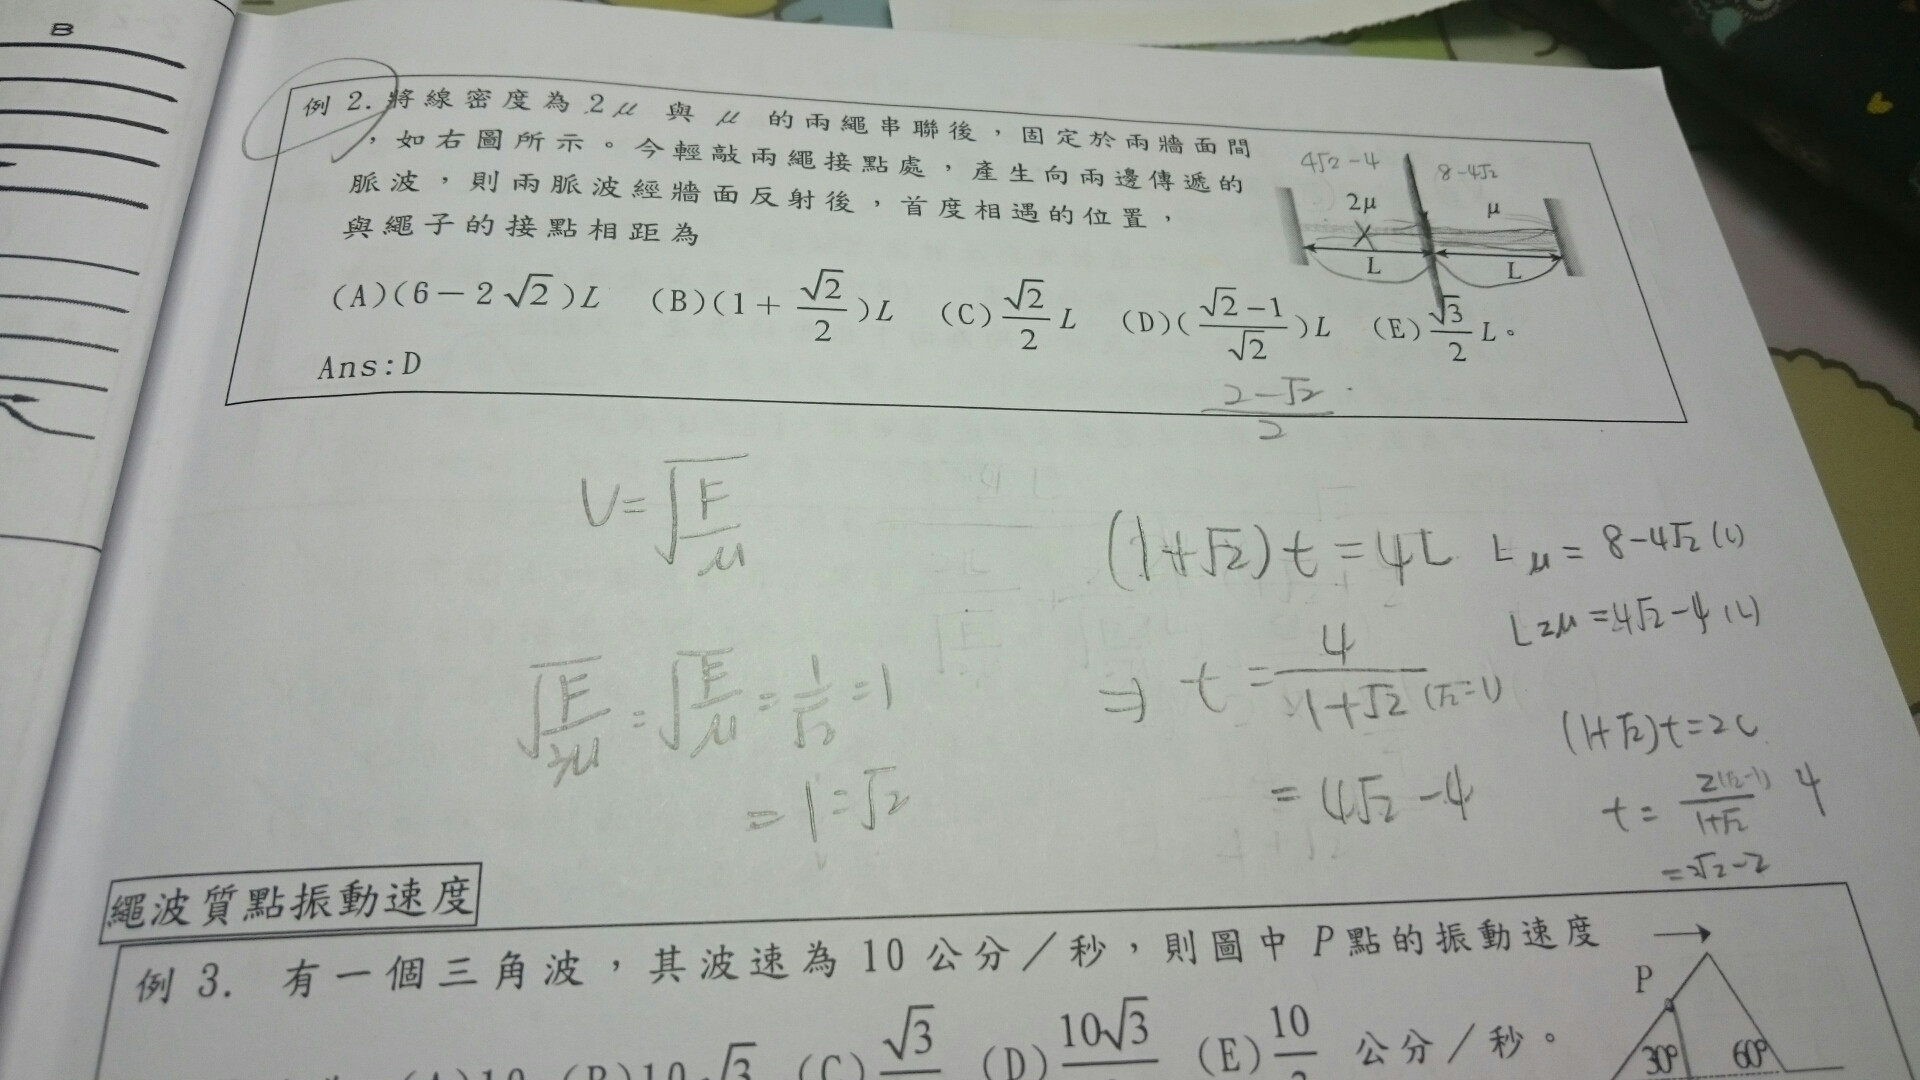 B
例 2. 將線密度為 2μ 與 μ 的兩繩串聯後，固定於兩牆面間
，如右圖所示。今輕敲兩繩接點處，產生向兩邊傳遞的
脈波，則兩脈波經牆面反射後，首度相遇的位置，
與繩子的接點相距為
4√2-4
8-4√2
2μ
μ
L
L
(A)(6-2√2)L (B)(1+√2/2)L (C)√2/2 L (D)((√2-1)/√2)L (E)√3/2 L。
Ans:D
(2-√2)/2
V=√(F/μ)
√(F/2μ) : √(F/μ) = 1/√2 : 1
= 1:√2
(1+√2)t=4L
⇒ t = 4/(1+√2) (√2-1)
= 4√2-4
Lμ = 8-4√2 (L)
L2μ = 4√2-4 (L)
(1+√2)t=2L
t= 2(√2-1)/(1+√2) 4
=2√2-2
繩波質點振動速度
例 3. 有一個三角波，其波速為 10 公分／秒，則圖中 P 點的振動速度
P
30° 60°
(A)10 (B)10√3 (C)√3 (D)10√3 (E)10 公分／秒。